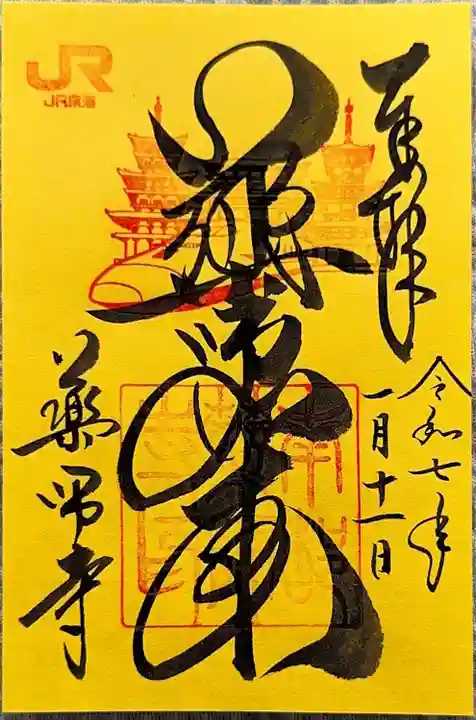 JR
JR東海
奉拝
令和七年
一月十一日
薬師如来
薬師寺